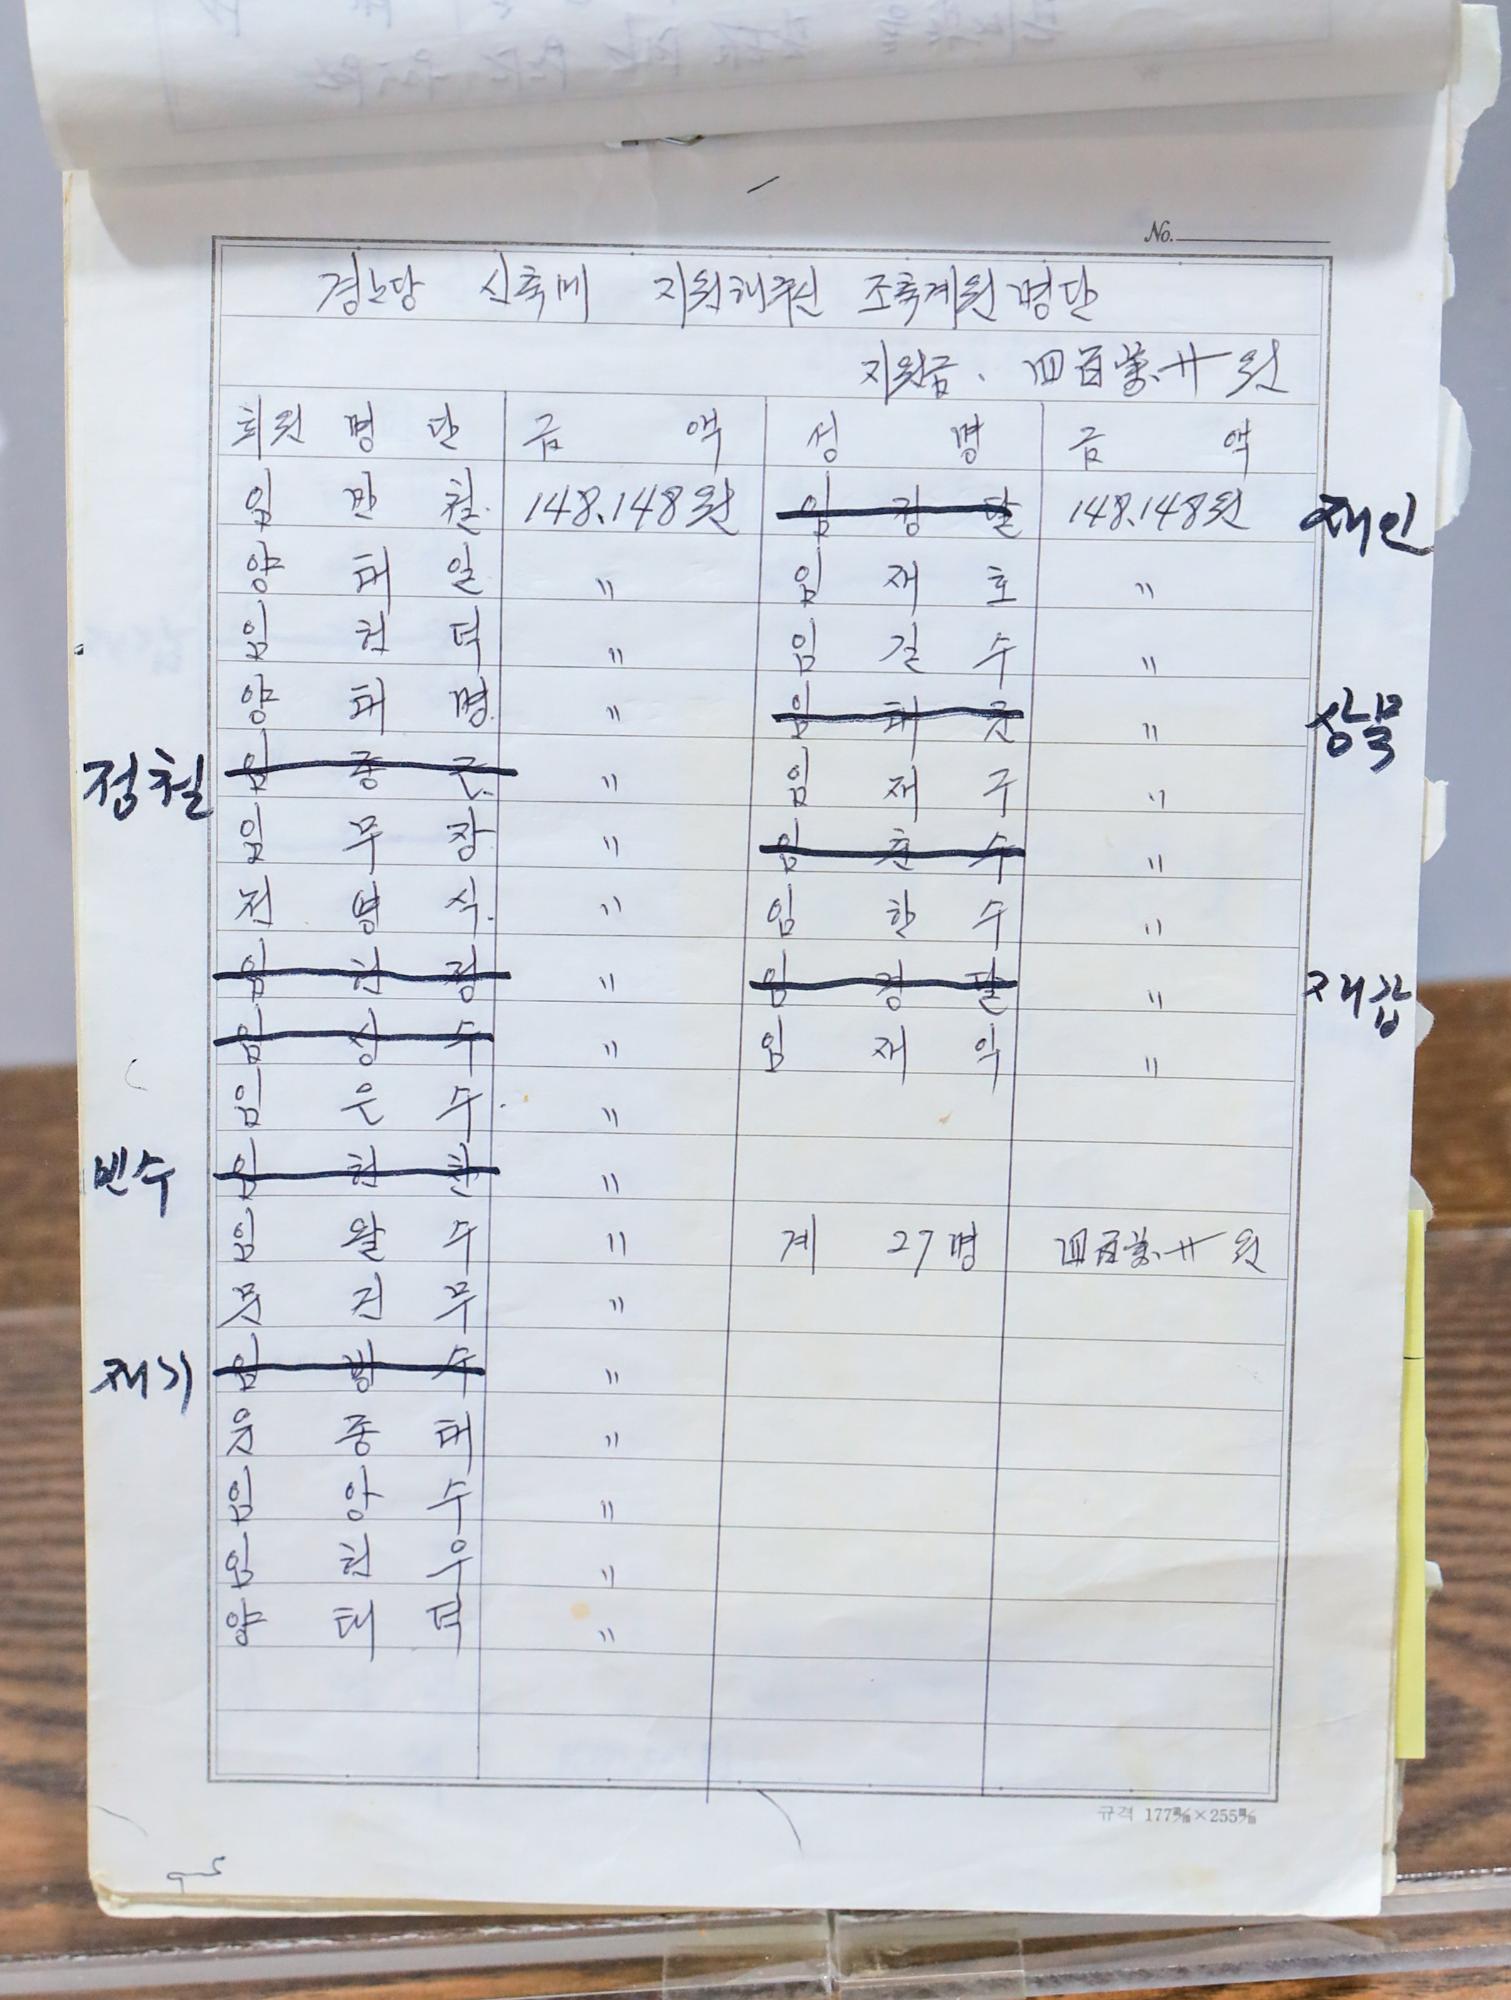 No.
경노당 신축비 지원해주신 조축계원명단
지원금. 四百萬.卄원
회원 명단 금 액 성 명 금 액
임 만 철. 148.148원 임 장 달 148.148원 재인
양 태 일 〃 임 재 호 〃
임 헌 덕 〃 임 길 수 〃
양 태 명. 〃 임 태 근 〃 상묵
정철 임 종 근. 〃 임 재 구 〃
임 무 장 〃 임 춘 수 〃
전 병 식. 〃 임 한 수 〃
임 헌 정 〃 임 경 달 〃 재갑
임 상 수 〃 임 재 익 〃
임 은 수. 〃
빈수 임 헌 찬 〃
임 왈 수 〃 계 27명 四百萬.卄원
문 건 무 〃
재기 임 방 수 〃
윤 종 태 〃
임 앙 수 〃
임 헌 우 〃
양 태 덕 〃
규격 177㎜×255㎜